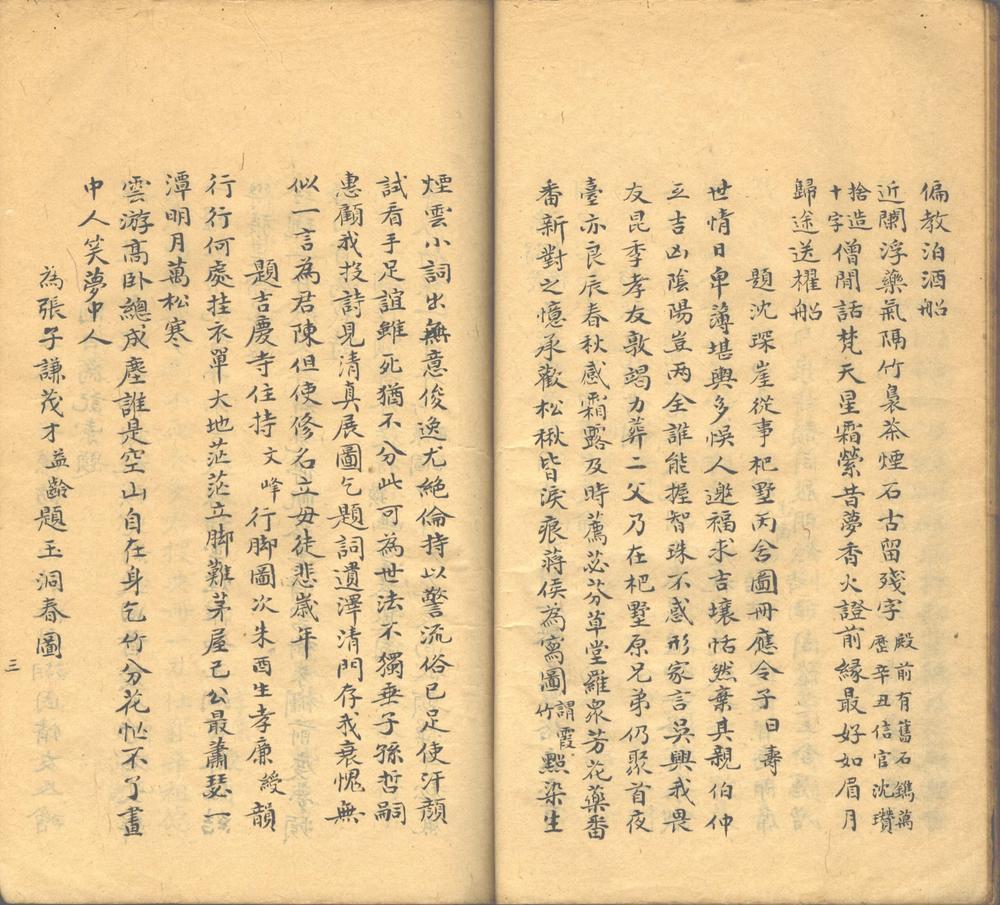 偏教泊酒船
近闌浮藥氣隔竹裊茶煙石古留殘字殿前有舊石鐫萬曆辛丑信官沈瓚
捨造十字僧閒話梵天星霜縈昔夢香火證前緣最好如眉月
歸途送櫂船
題沈琛崖從事杷墅丙舍圖冊應令子曰壽
世情日卑薄堪輿多悞人邀福求吉壤恬然棄其親伯仲
立吉凶陰陽豈两全誰能握智珠不惑形家言吳興我畏
友昆季孝友敦竭力葬二父乃在杷墅原兄弟仍聚首夜
臺亦良辰春秋感霜露及時薦苾芬草堂羅衆芳花藥番
番新對之憶承歡松楸皆淚痕蔣侯為寫圖謂霞竹㸃染生
煙雲小詞出無意俊逸尤絕倫持以警流俗已足使汗顏
試看手足誼雖死猶不分此可為世法不獨垂子孫哲嗣
惠顧我投詩見清真展圖乞題詞遺澤清門存我衰愧無
似一言為君陳但使修名立毋徒悲歲年
題吉慶寺住持文峰行脚圖次朱酉生孝廉綬韻
行行何處挂衣單大地茫茫立脚難茅屋已公最蕭瑟結
潭明月萬松寒
雲游高卧總成塵誰是空山自在身乞竹分花忙不了畫
中人笑夢中人
為張子謙茂才益齡題玉洞春圖
三